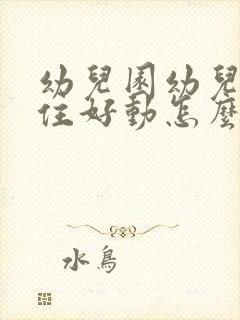 幼兒園幼兒
住好動怎麼
水鳥